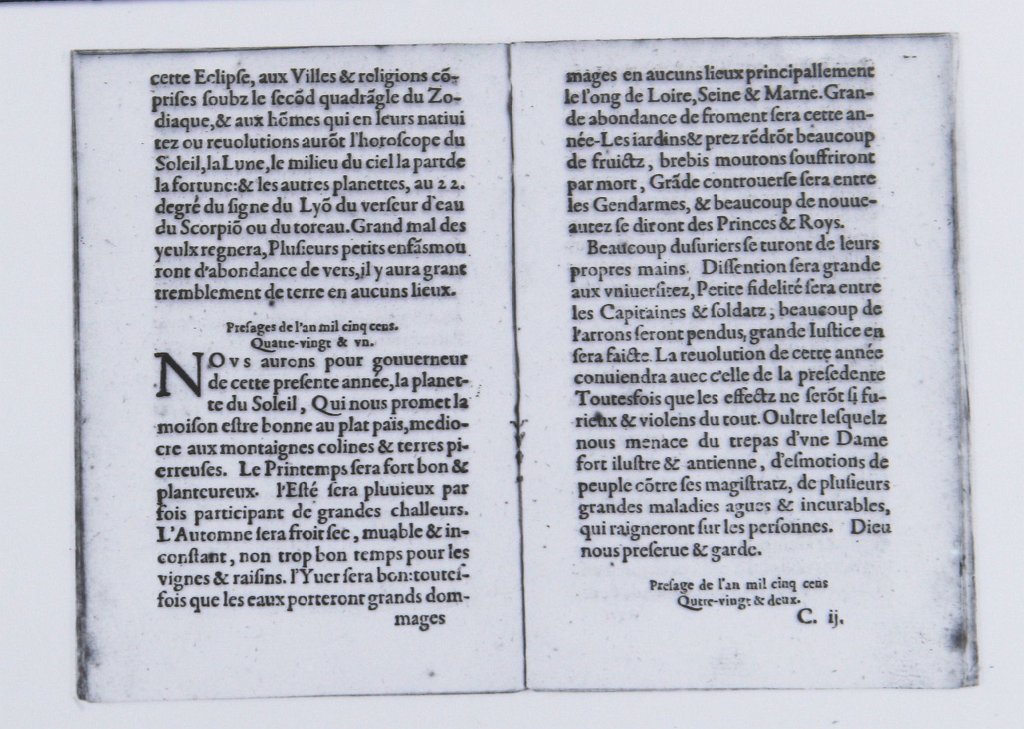 cette Eclipſe, aux Villes & religions cõ-
priſes ſoubz le ſecõd quadrãgle du Zo-
diaque,& aux hõmes qui en leurs natiui
tez ou reuolutions aurõt l'horoſcope du
Soleil,la Lune,le milieu du ciel la part de
la fortune:& les autres planettes, au 22.
degré du ſigne du Lyõ du verſeur d'eau
du Scorpiõ ou du toreau. Grand mal des
yeulx regnera, Pluſieurs petits enfãs mou
ront d'abondance de vers,il y aura grant
tremblement de terre en aucuns lieux.
Preſages de l'an mil cinq cens.
Quatre-vingt & vn.
NOVS aurons pour gouuerneur
de cette preſente année,la planet-
te du Soleil, Qui nous promet la
moiſon eſtre bonne au plat païs,medio-
cre aux montaignes colines & terres pi-
erreuſes. Le Printemps ſera fort bon &
planteureux. l'Eſté ſera pluuieux par
fois participant de grandes challeurs.
L'Automne ſera froit ſec, muable & in-
conſtant, non trop bon temps pour les
vignes & raiſins. l'Yuer ſera bon:toutef-
fois que les eaux porteront grands dom-
mages
mages en aucuns lieux principallement
le l'ong de Loire, Seine & Marne. Gran-
de abondance de froment ſera cette an-
née-Les iardins& prez rẽdrõt beaucoup
de fruictz, brebis moutons ſouffriront
par mort, Grãde controuerſe ſera entre
les Gendarmes, & beaucoup de nouue-
autez ſe diront des Princes & Roys.
Beaucoup duſuriers ſe turont de leurs
propres mains. Diſſention ſera grande
aux vniuerſitez, Petite fidelité ſera entre
les Capitaines & ſoldatz; beaucoup de
l'arrons ſeront pendus, grande Iuſtice en
ſera faicte. La reuolution de cette année
conuiendra auec c'elle de la preſedente
Toutesfois que les effectz ne ſerõt ſi fu-
rieux & violens du tout. Oultre leſquelz
nous menace du trepas d'vne Dame
fort iluſtre & antienne, d'eſmotions de
peuple cõtre ſes magiſtratz, de pluſieurs
grandes maladies agues & incurables,
qui raigneront ſur les perſonnes. Dieu
nous preſerue & garde.
Preſage de l'an mil cinq cens
Qutre-vingt & deux.
C. ij.